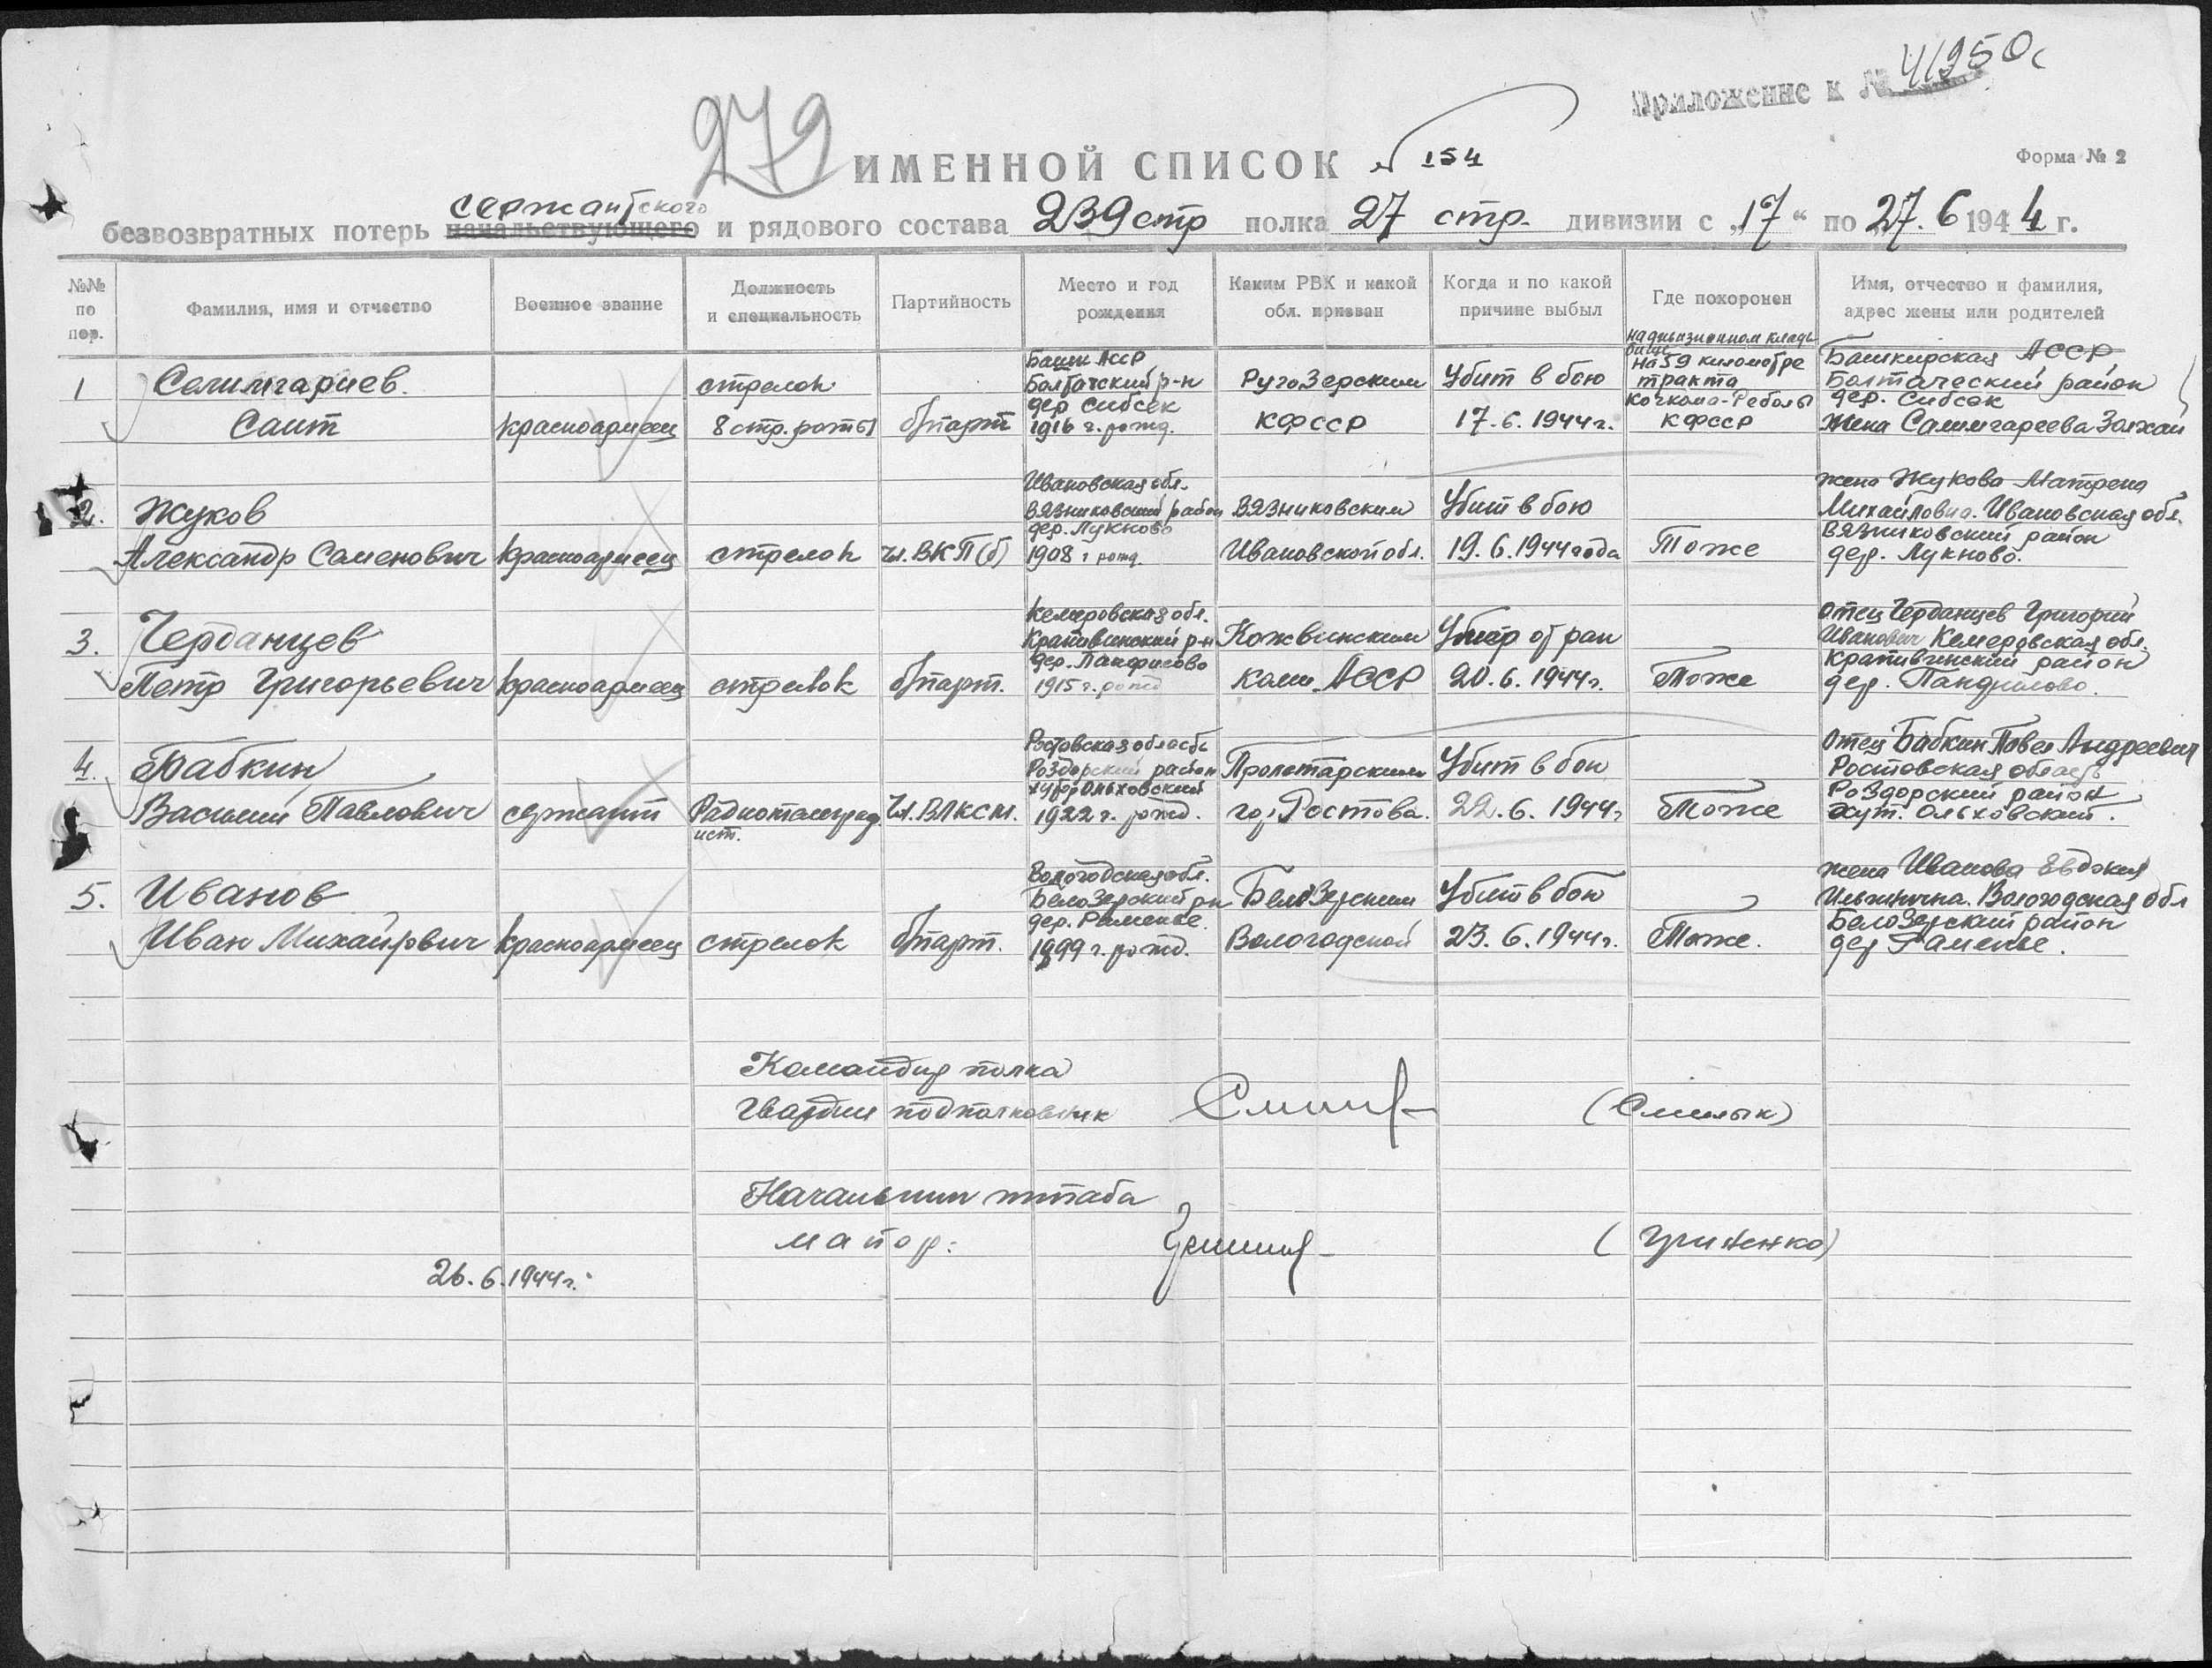 Приложение к № 41950с
279
ИМЕННОЙ СПИСОК № 154
Форма № 2
сержантского
безвозвратных потерь начальствующего и рядового состава 239 стр полка 27 стр. дивизии с „17“ по 27.6 1944 г.
№№ по пор.
Фамилия, имя и отчество
Военное звание
Должность и специальность
Партийность
Место и год рождения
Каким РВК и какой обл. призван
Когда и по какой причине выбыл
Где похоронен
Имя, отчество и фамилия, адрес жены или родителей
1
Салимгариев.
Саит
красноармеец
стрелок
8 стр. роты
б/парт
Башк АССР
Балтачский р-н
дер Сибсек
1916 г. рожд.
РугоЗерским
КФССР
Убит в бою
17.6.1944 г.
на дивизионном кладбище
на 59 километре
тракта
Кочкома-Реболы
КФССР
Башкирская АССР
Балтаческий район
дер. Сибсек
Жена Салимгареева
2.
Жуков
Александр Семенович
красноармеец
стрелок
чл. ВКП(б)
Ивановская обл.
Вязниковский район
дер. Лукново
1908 г рожд.
Вязниковским
Ивановской обл.
Убит в бою
19.6.1944 года
Тоже
жена Жукова Матрена
Михайловна. Ивановская обл.
Вязниковский район
дер. Лукново.
3.
Черданцев
Петр Григорьевич
красноармеец
стрелок
б/парт.
Кемеровская обл.
Крапивинский р-н
дер. Панфилово
1915 г. рожд
Кожвинским
Коми АССР
Умер от ран
20.6.1944 г.
Тоже
отец Черданцев Григорий
Иванович Кемеровская обл.
Крапивинский район
дер. Панфилово.
4.
Бабкин
Василий Павлович
сержант
Радиотелеграфист.
Чл. ВЛКСМ.
Ростовская область
Роздорский район
хутор Ольховский
1922 г. рожд.
Пролетарским
гор. Ростова.
Убит в бою
22.6.1944 г
Тоже
Отец Бабкин Павел Андреевич
Ростовская область
Роздорский район
хут. Ольховский.
5.
Иванов
Иван Михайлович
красноармеец
стрелок
б/парт.
Вологодская обл.
БелоЗерский рн
дер. Раменье.
1899 г. рожд.
БелоЗерским
Вологодской
Убит в бою
23.6.1944 г.
Тоже.
жена Иванова Евдокия
Ильинична. Вологодская обл
БелоЗерский район
дер Раменье.
Командир полка
Гвардии подполковник
(Смилык)
Начальник штаба
майор:
(Гриненко)
26.6.1944 г.